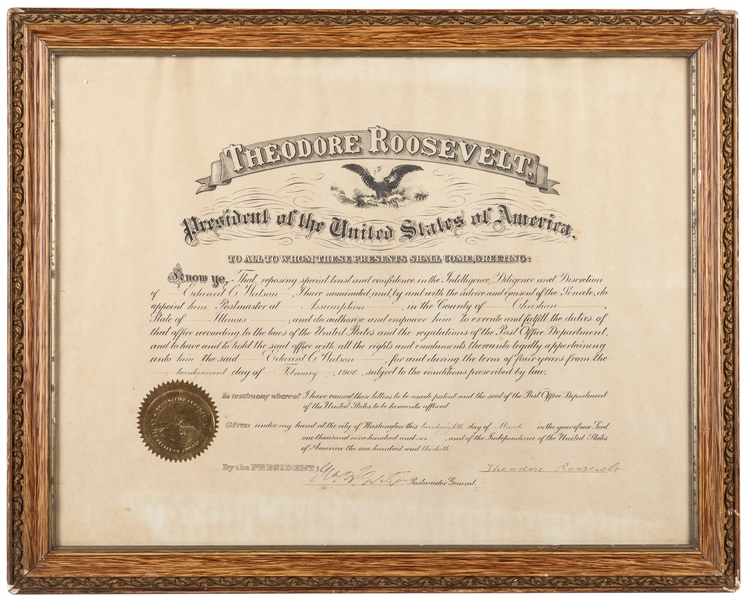 THEODORE ROOSEVELT,
President of the United States of America.
TO ALL TO WHOM THESE PRESENTS SHALL COME, GREETING:
Know ye, That, reposing special trust and confidence in the Intelligence, Diligence and Discretion
of Edward C. Watson, I have nominated, and, by and with the advice and consent of the Senate, do
appoint him Postmaster at Assumption, in the County of Christian
State of Illinois, and do authorize and empower him to execute and fulfill the duties of
that office according to the laws of the United States and the regulations of the Post Office Department,
and to have and to hold the said office with all the rights and emoluments thereunto legally appertaining
unto him the said Edward C. Watson, for and during the term of four years from the
day of February, 1906, subject to the conditions prescribed by law.
In testimony whereof I have caused these letters to be made patent and the seal of the Post Office Department
of the United States to be hereunto affixed.
Given under my hand at the city of Washington this twenty-eighth day of March in the year of our Lord
one thousand nine hundred and six, and of the Independence of the United States
of America the one hundred and thirtieth
By the PRESIDENT:
Theodore Roosevelt
Postmaster General.